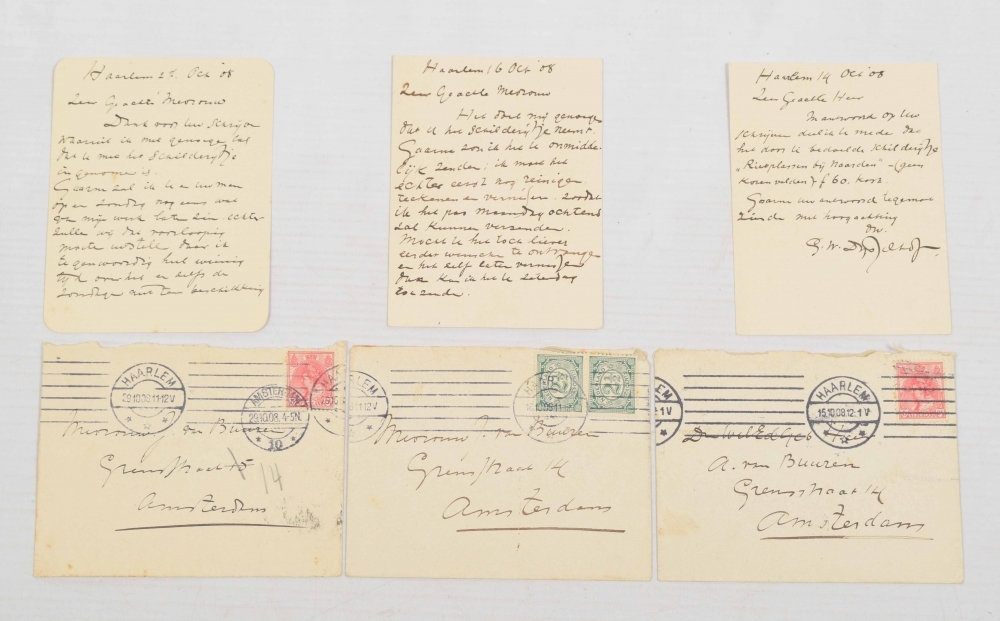 Haarlem 28 Oct '08
Zeer Geachte Mevrouw
Dank voor Uw schrijven
waaruit ik met genoegen
dat U met het schilderijtje
ingenomen is.
Gaarne zal ik U en Uw man
op een zondag nog eens wat
van mijn werk laten zien. echter
zullen wij dit voorloopig
moeten uitstellen daar ik
tegenwoordig heel weinig
tijd over heb en zelfs de
Zondagen niet ter beschikking
Haarlem 16 Oct '08
Zeer Geachte Mevrouw
Het doet mij genoegen
dat U het schilderijtje neemt.
Gaarne zou ik het U onmidde-
lijk zenden; ik moet het
echter eerst nog reinigen
teekenen en vernissen. zoodat
ik het pas Maandag ochtend
zal kunnen verzenden.
Mocht U het toch liever
eerder wenschen te ontvangen
en het zelf later vernissen
dan kan ik het U Zaterdag
toezenden.
Haarlem 14 Oct '08
Zeer Geachte Heer
In antwoord op Uw
schrijven deel ik U mede dat
het door U bedoelde schilderijtje
"Rietplassen bij Naarden" – (geen
Korenvelden) f 60. kost.
Gaarne Uw antwoord tegemoet
ziende met hoogachting
Dw.
HAARLEM
29.10.08 11-12V
AMSTERDAM
29.10.08. 4-5N.
10
Mevrouw van Buuren
Grensstraat
14
Amsterdam
HAARLEM
10.08 11-12V
Mevrouw J. van Buuren
Grensstraat 14
Amsterdam
HAARLEM
15.10.08 12-1V
A. van Buuren
Grensstraat 14
Amsterdam